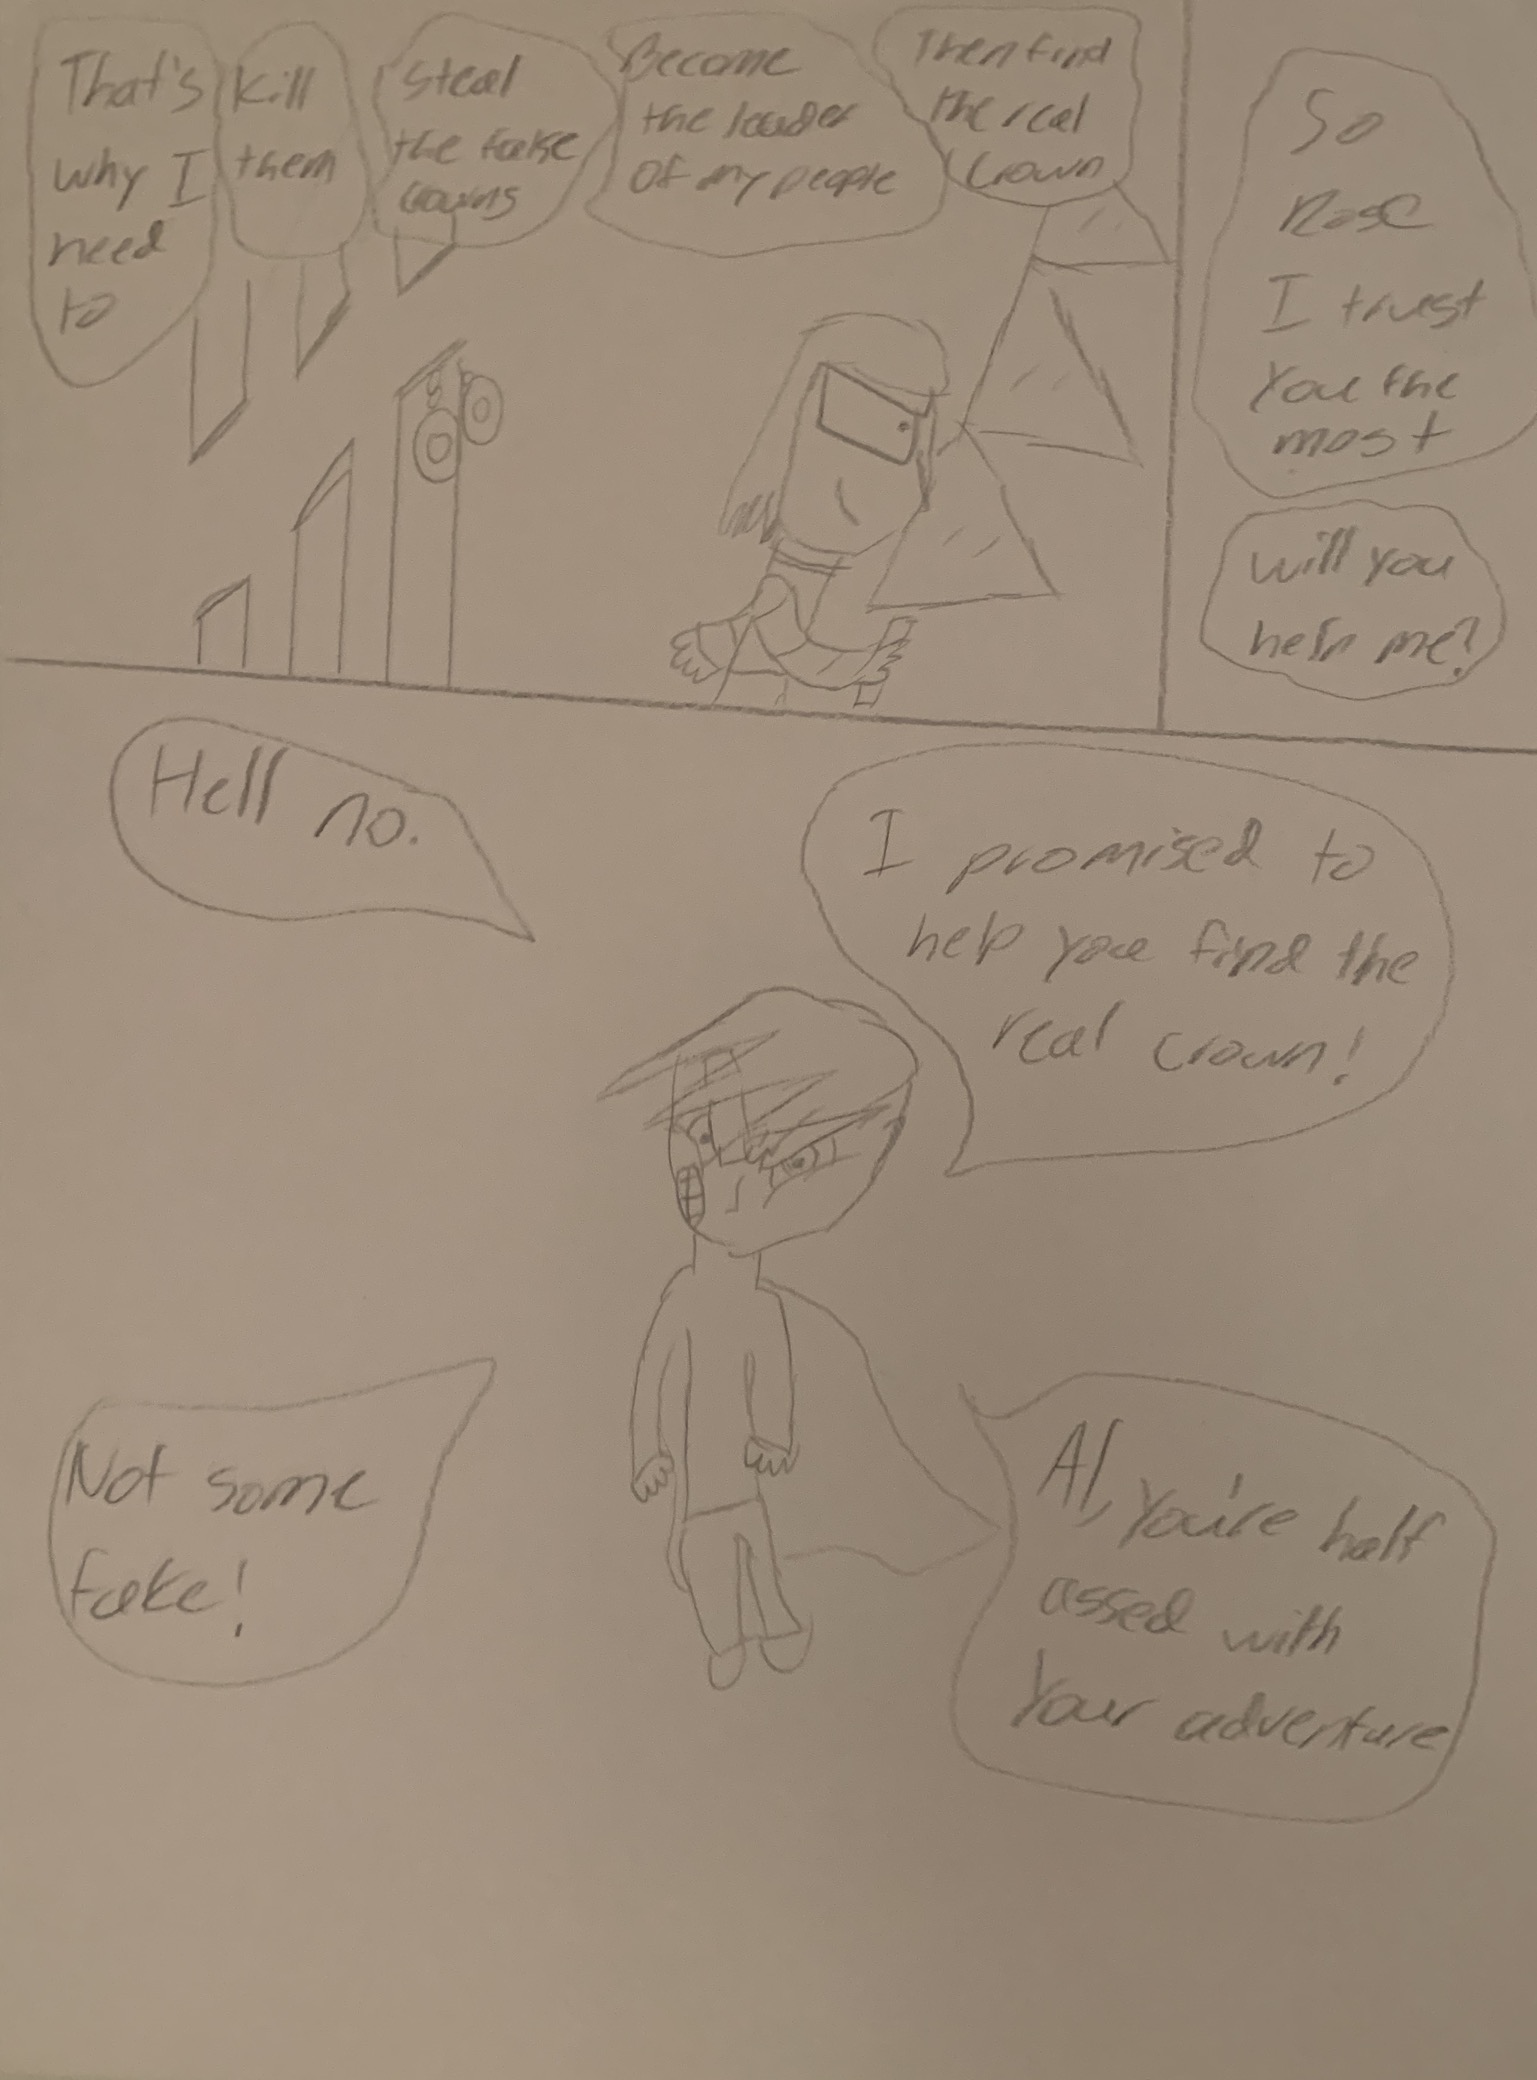 That's
why I
need
to
kill
them
steal
the fake
crowns
Become
the leader
of my people
Then find
the real
crown
So
Rose
I trust
you the
most
will you
help me?
Hell no.
I promised to
help you find the
real crown!
Not some
fake!
Al, you're half
assed with
your adventure